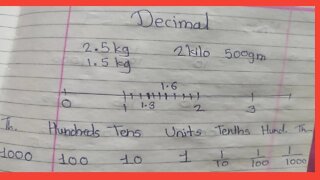 Decimal
2.5kg 2kilo 500gm
1.5kg
1.6
0 1 1.3 2 3
Th. Hundreds Tens Units Tenths Hund. Th.
1000 100 10 1 1/10 1/100 1/1000